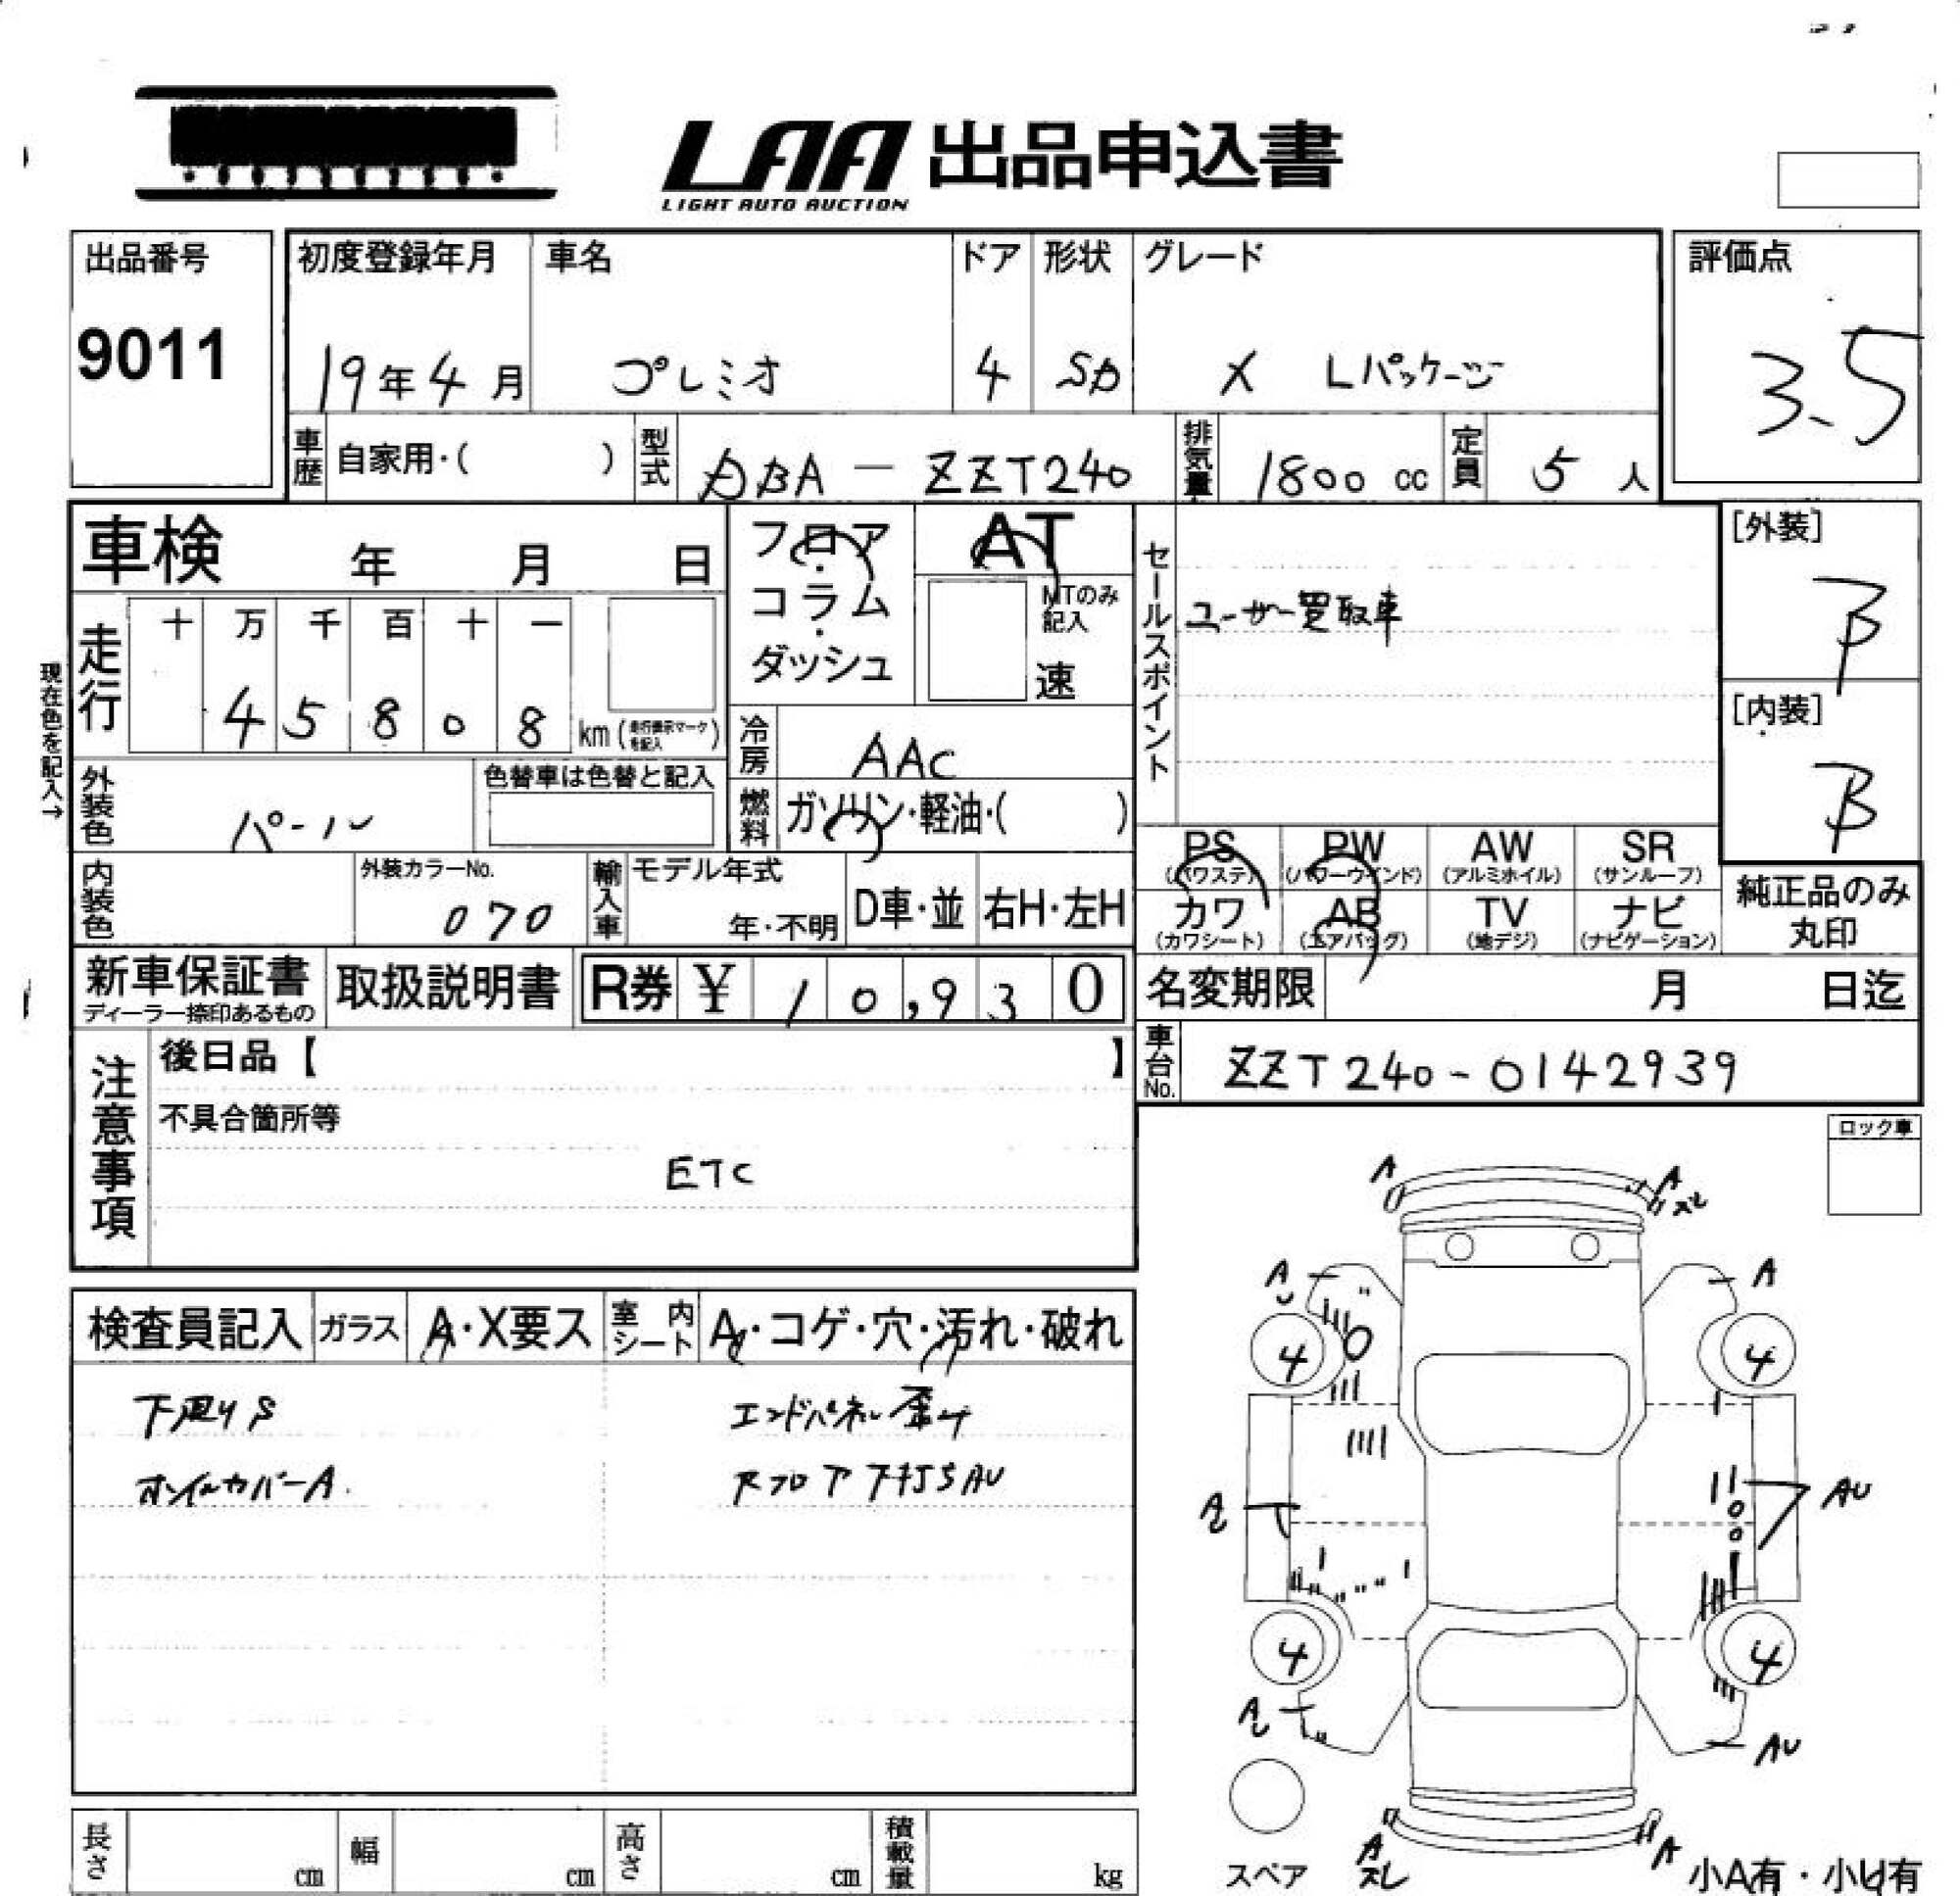 LAA 出品申込書
LIGHT AUTO AUCTION
出品番号
9011
初度登録年月
19年4月
車名
プレミオ
ドア
4
形状
SD
グレード
X Lパッケージ
評価点
3.5
車歴
自家用・( )
型式
DBA - ZZT240
排気量
1800 cc
定員
5 人
車検 年 月 日
フロア・コラム・ダッシュ
AT
MTのみ記入
速
セールスポイント
ユーザー買取車
[外装]
B
[内装]
B
現在色を記入→
走行
十 万 千 百 十 一
4 5 8 0 8 km (走行表示マークを記入)
冷房
AAC
外装色
パール
色替車は色替と記入
燃料
ガソリン・軽油・( )
PS (パワステ)
PW (パワーウインド)
AW (アルミホイル)
SR (サンルーフ)
カワ (カワシート)
AB (エアバッグ)
TV (地デジ)
ナビ (ナビゲーション)
純正品のみ丸印
内装色
外装カラーNo.
070
輸入車
モデル年式
年・不明
D車・並
右H・左H
新車保証書
ディーラー捺印あるもの
取扱説明書
R券 ¥ 10,930
名変期限 月 日迄
注意事項
後日品【 】
不具合箇所等
ETC
車台No.
ZZT240-0142939
ロック車
検査員記入
ガラス
A・X要ス
室内シート
A・コゲ・穴・汚れ・破れ
下廻りS
エンドパネル歪み
ホイルカバーA
RフロアフチSAU
A
A
ズレ
A
A
4
4
A
AU
4
4
A
AU
A
ズレ
A
スペア
小A有・小U有
長さ cm
幅 cm
高さ cm
積載量 kg